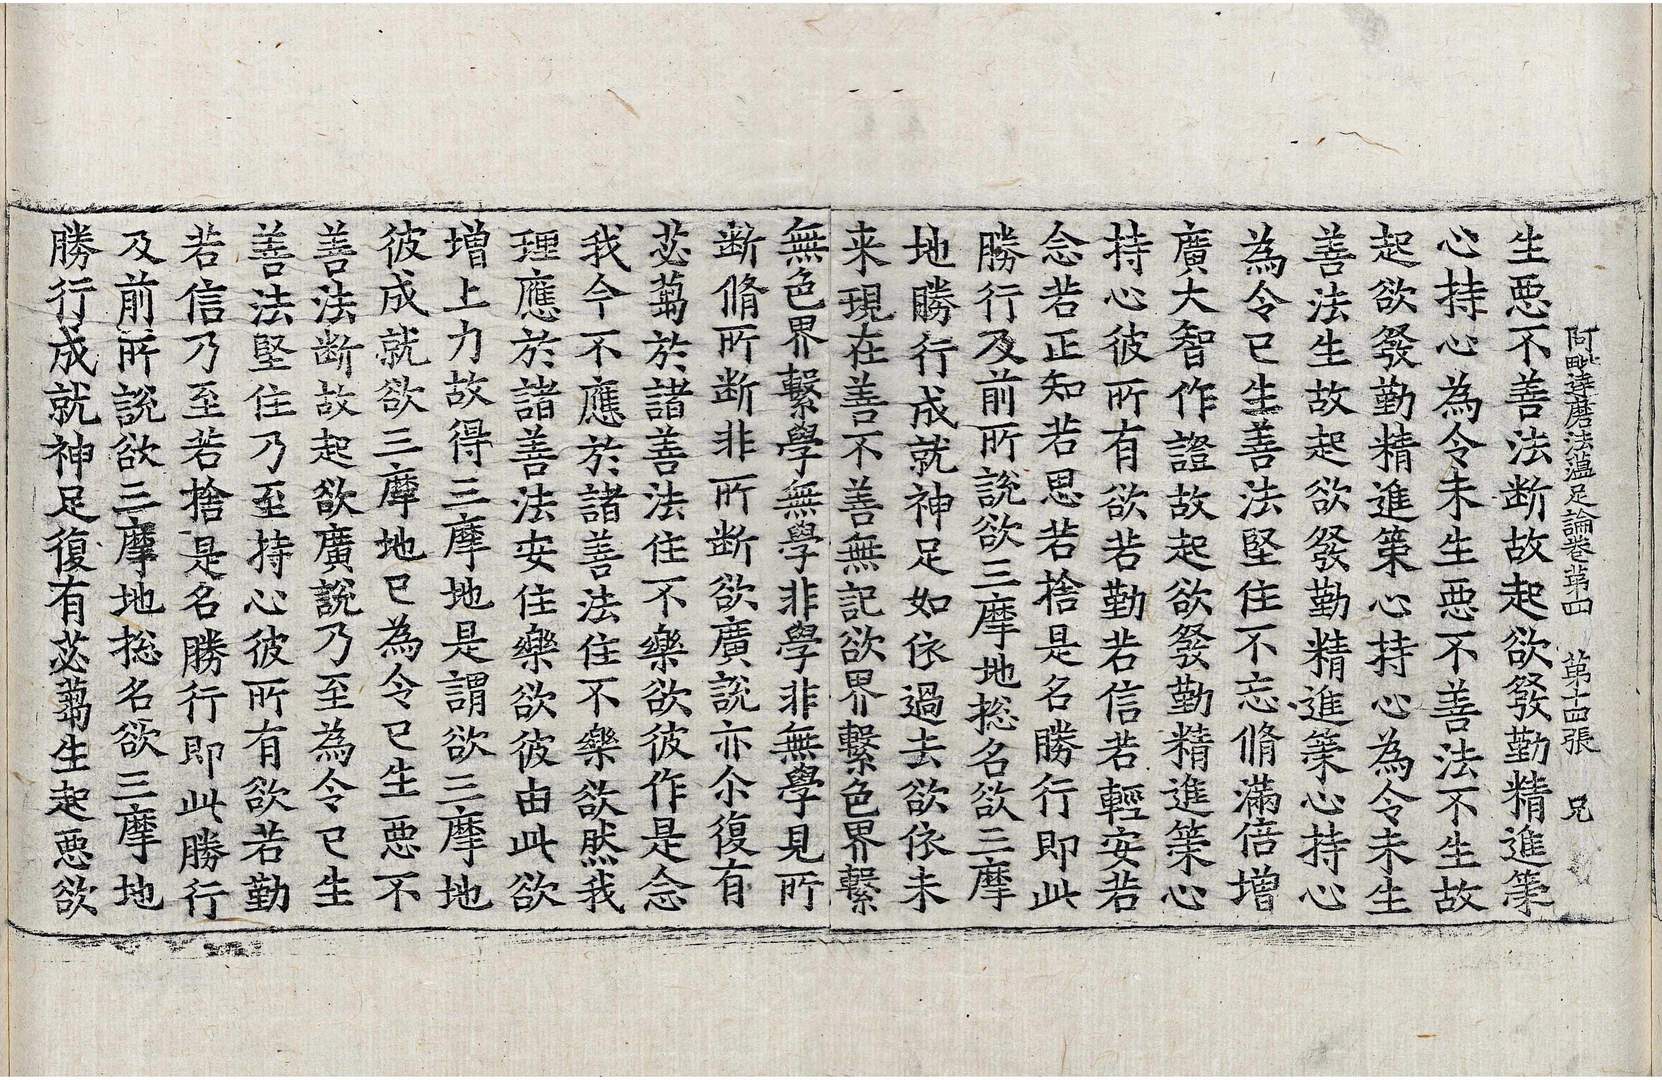 阿毗達磨法蕰足論卷苐四 苐十四張 兄
生惡不善法断故起欲發勤精進策
心持心為令未生惡不善法不生故
起欲發勤精進策心持心為令未生
善法生故起欲發勤精進策心持心
為令已生善法堅住不忘脩滿倍增
廣大智作證故起欲發勤精進策心
持心彼所有欲若勤若信若輕安若
念若正知若思若捨是名勝行即此
勝行及前所說欲三摩地揔名欲三摩
地勝行成就神足如依過去欲依未
来現在善不善無記欲界繫色界繫
無色界繫學無學非學非無學見所
断脩所断非所断欲廣說亦尒復有
苾蒭於諸善法住不樂欲彼作是念
我今不應於諸善法住不樂欲然我
理應於諸善法安住樂欲彼由此欲
增上力故得三摩地是謂欲三摩地
彼成就欲三摩地已為令已生惡不
善法断故起欲廣說乃至為令已生
善法堅住乃至持心彼所有欲若勤
若信乃至若捨是名勝行即此勝行
及前所說欲三摩地揔名欲三摩地
勝行成就神足復有苾蒭生起惡欲